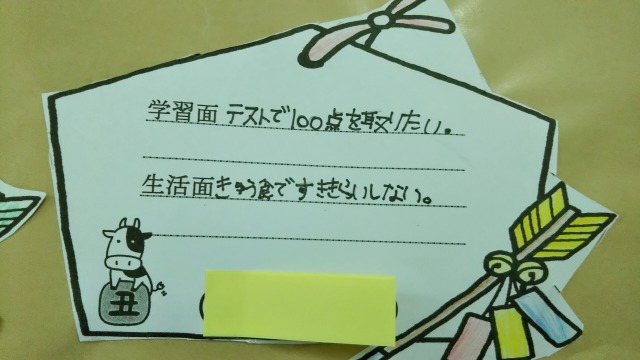 学習面 テストで100点を取りたい。
生活面 きゅう食ですききらいしない。
丑